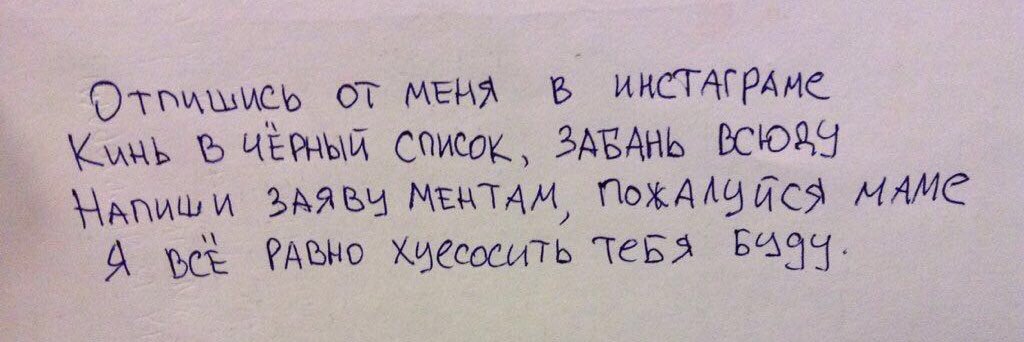 Отпишись от меня в инстаграме
Кинь в чёрный список, забань всюду
Напиши заяву ментам, пожалуйся маме
Я всё равно хуесосить тебя буду.